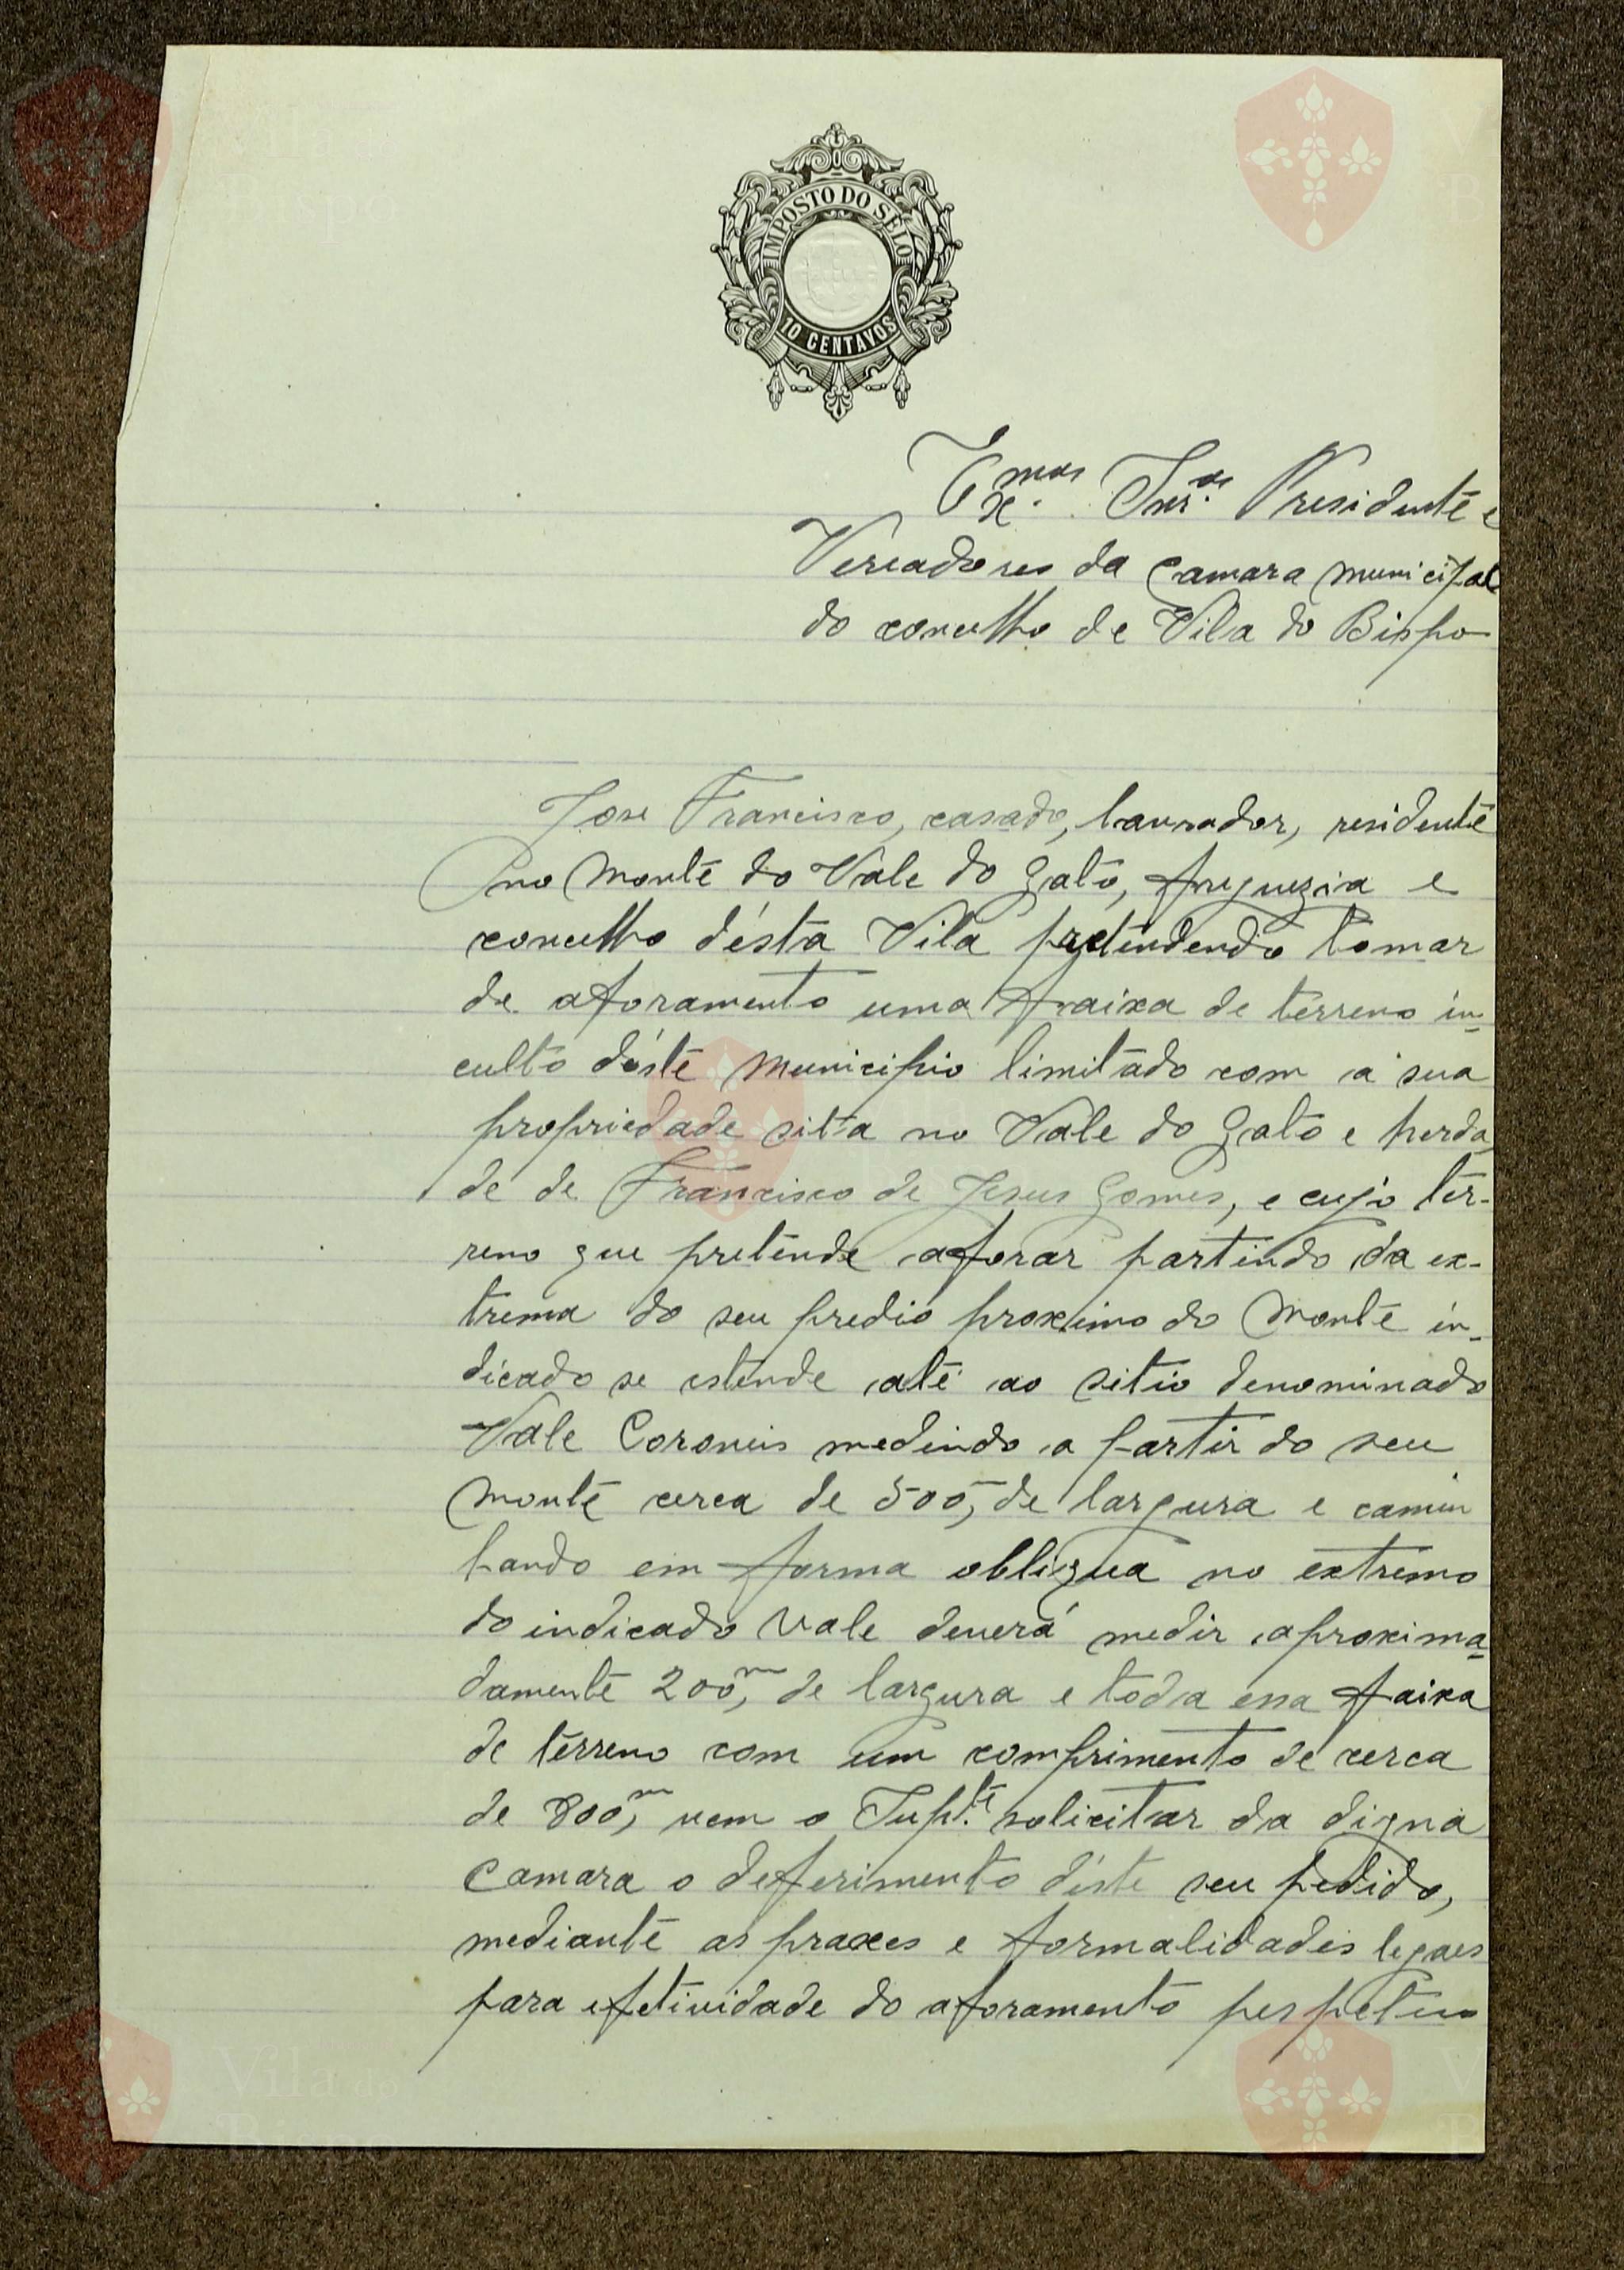 IMPOSTO DO SELO
10 CENTAVOS
Ex.mos Snr.os Presidente e
Vereadores da Camara Municipal
do concelho de Vila do Bispo
José Francisco, casado, lavrador, residente
no Monte do Vale do Gato, freguezia e
concelho désta Vila pretendendo tomar
de aforamento uma faixa de terreno in-
culto déste Municipio limitado com a sua
propriedade sita no Vale do Gato e herda
de de Francisco de Jesus Gomes, e cujo ter-
reno que pretende aforar partindo da ex-
trema do seu predio proximo do Monte in-
dicado se estende até ao sitio denominado
Vale Coroneis medindo a partir do seu
Monte cerca de 500, de largura e camin
hando em forma obliqua no extremo
do indicado Vale deverá medir aproxima-
damente 200m, de largura e toda essa faixa
de terreno com um comprimento de cerca
de 800m, vem o Supte. solicitar da digna
Camara o defferimento déste seu pedido,
mediante as praxes e formalidades legaes
para efetividade do aforamento perpetuo
Vila do
Bispo